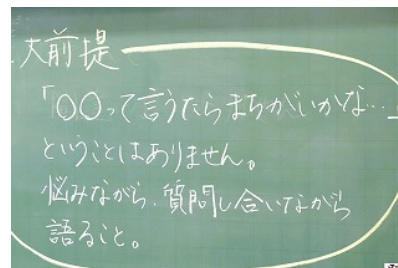 大前提
「〇〇って言うたらまちがいかな…」
ということはありません。
悩みながら、質問し合いながら
語ること。